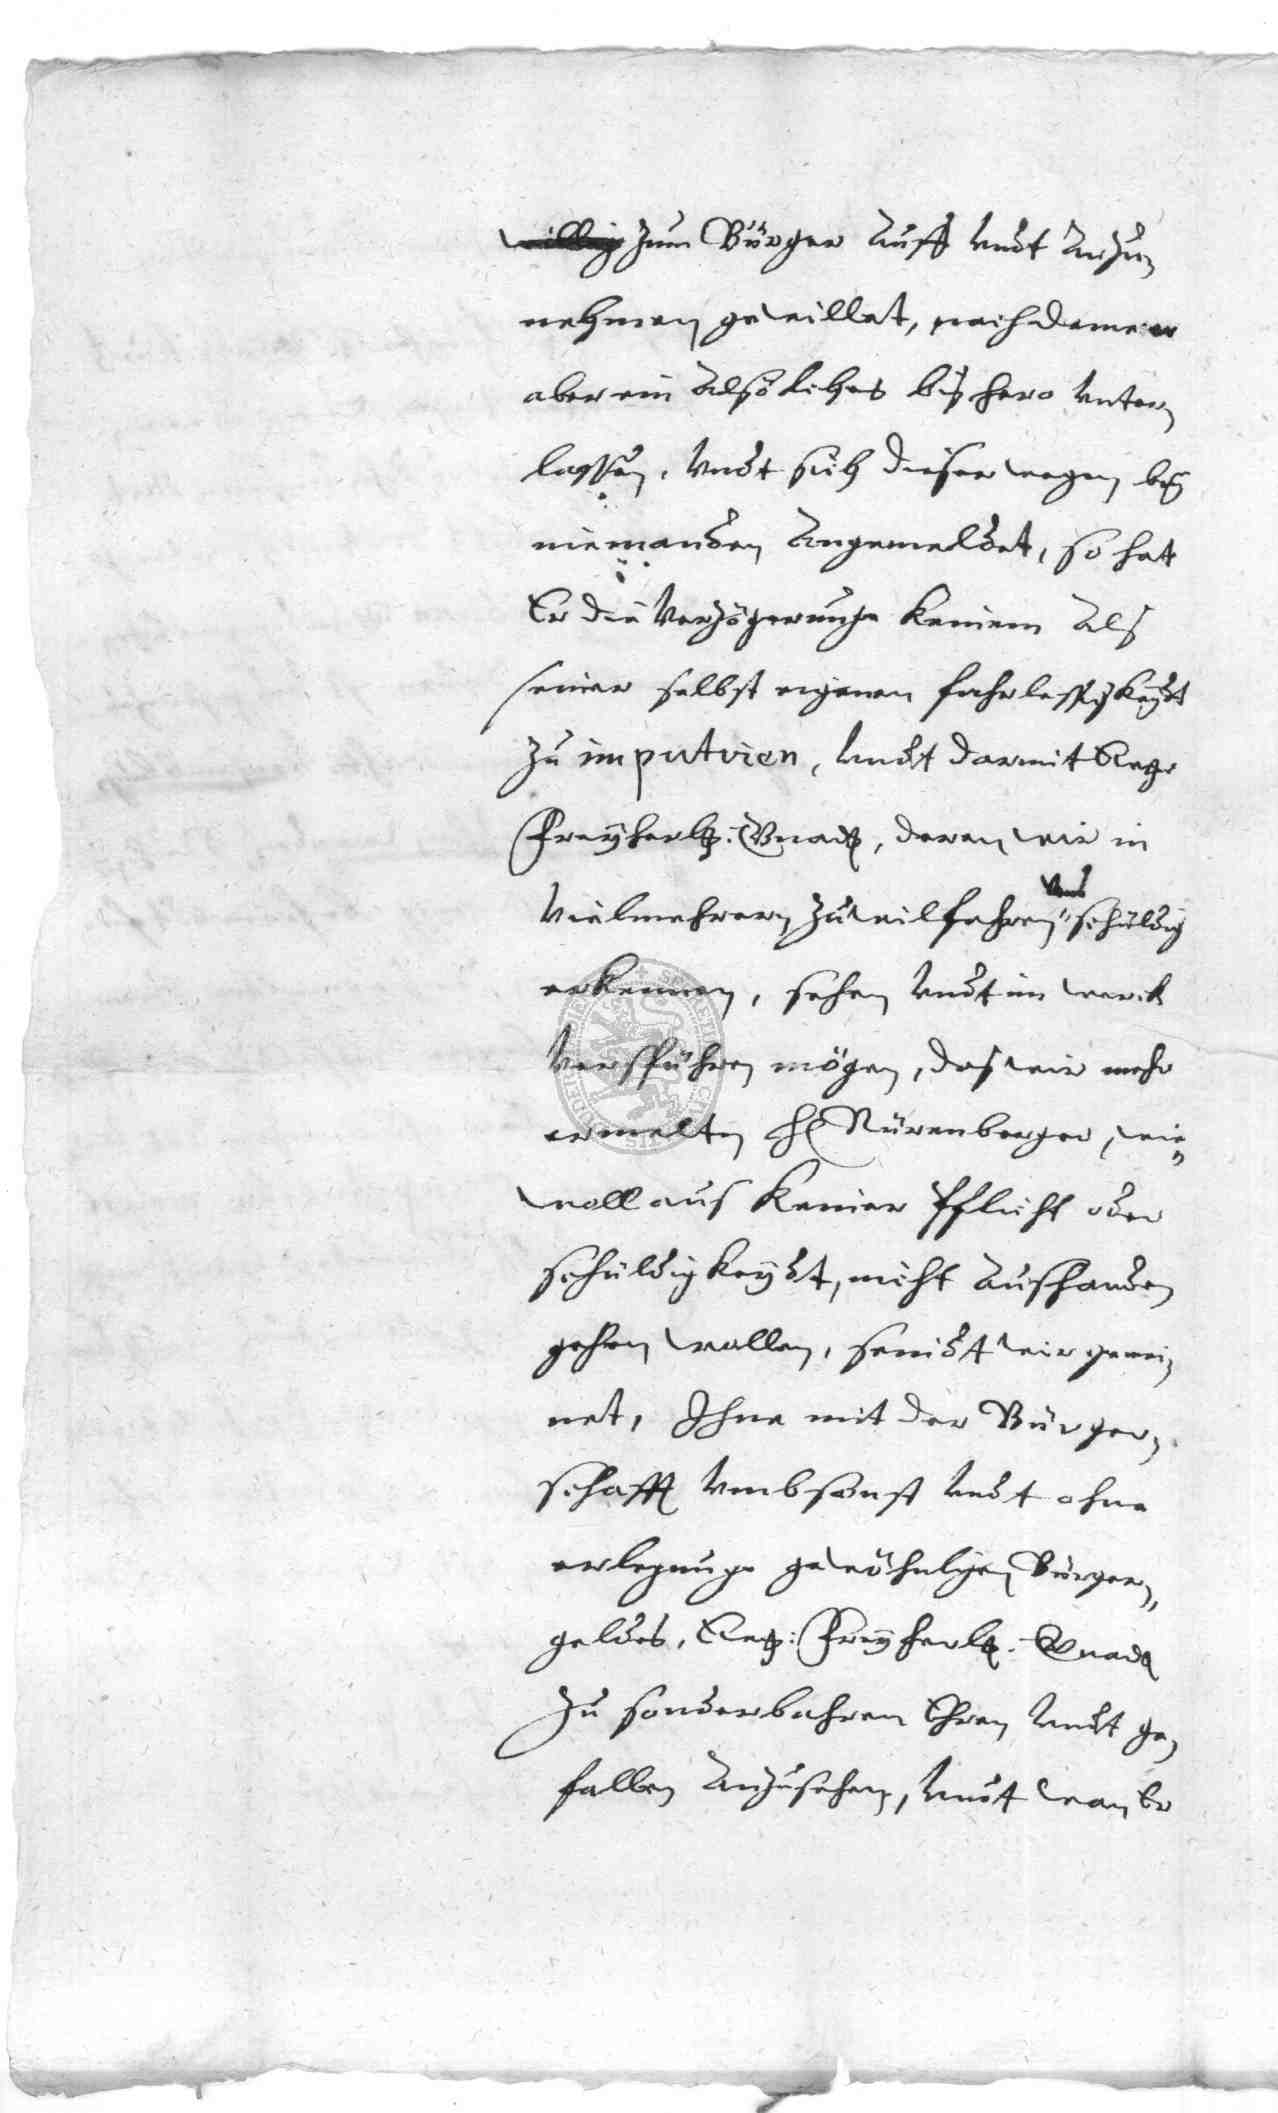 willig zum Bürger Auff vndt Anzu-
nehmen gewillet, nachdeme er
aber ein Alsolches bißhero vnter-
lassen, vndt sich dieser wegen beÿ
niemanden Angemeldet, so hat
Er die Verzögerunge keinem Als
seiner selbst eigenen fahrlessigkeydt
zu imputiren, vndt darmit Ewge
Freÿherl: Gnad, deren wir in
vielmehrern zu wilfahren vns schuldig
erkennen, sehen vndt im werck
verspühren mögen, das wir mehr
ermelten H Nürenberger, wie
woll aus keiner Pflicht oder
schuldigkeÿdt, nicht Aushanden
gehen wollen, seindt wir gemei-
net, Ihne mit der Bürger-
schafft vmbsonst vndt ohne
erlegunge gewöhnlichen Bürger-
geldes, Ewg: Freÿherl: Gnad
zu sonderbahren Ehren vndt ge-
fallen Anzusehen, vndt wan Er